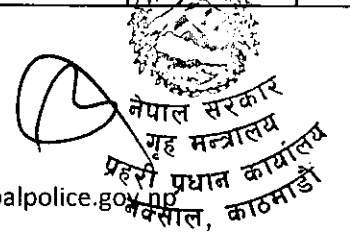 नेपाल सरकार
गृह मन्त्रालय
प्रहरी प्रधान कार्यालय
नक्साल, काठमाडौं
palpolice.gov.np